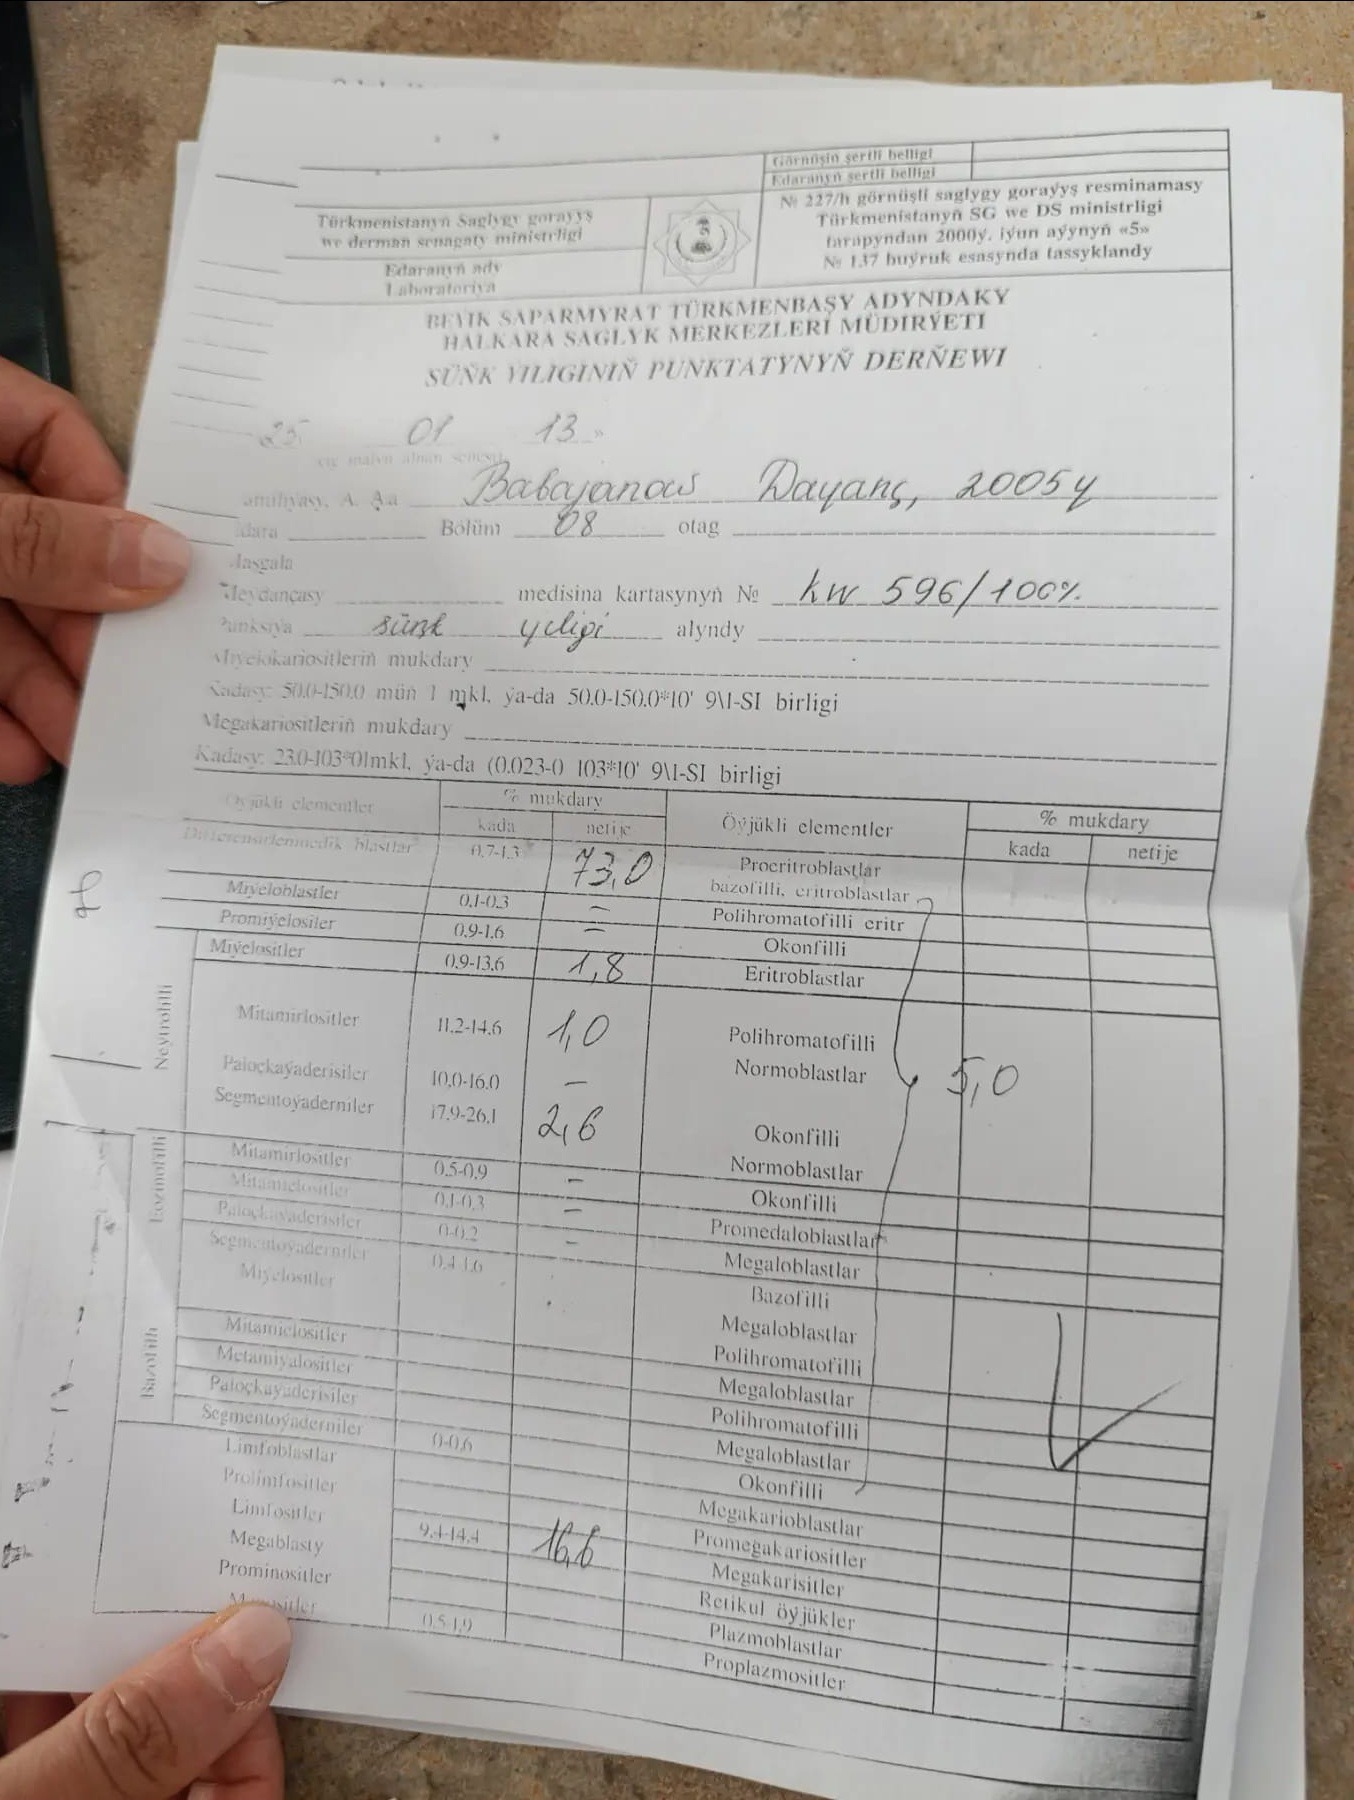 Görnüşiň şertli belligi
Edaranyň şertli belligi
Türkmenistanyň Saglygy goraýyş
we derman senagaty ministrligi
№ 227/h görnüşli saglygy goraýyş resminamasy
Türkmenistanyň SG we DS ministrligi
tarapyndan 2000ý. iýun aýynyň «5»
№ 137 buýruk esasynda tassyklandy
Edaranyň ady
Laboratoriýa
BEÝIK SAPARMYRAT TÜRKMENBAŞY ADYNDAKY
HALKARA SAGLYK MERKEZLERI MÜDIRÝETI
SÜŇK ÝILIGINIŇ PUNKTATYNYŇ DERŇEWI
25 01 13 »
A. Aa Babajanow Daýanç, 2005ý
Bölüm 08 otag
medisina kartasynyň № kw 596/100%
süňk ýeligi alyndy
Miýelokariositleriň mukdary
Kadasy: 50.0-150.0 müň 1 mkl. ýa-da 50.0-150.0*10' 9\1-SI birligi
Megakariositleriň mukdary
Kadasy: 23.0-103*01mkl. ýa-da (0.023-0 103*10' 9\1-SI birligi
Öýjükli elementler % mukdary Öýjükli elementler % mukdary
kada netije kada netije
Differensirlenmedik blastlar 0.7-1.3 73,0 Proeritroblastlar
bazofilli, eritroblastlar
Miýeloblastler 0.1-0.3 – Polihromatofilli eritr
Promiýelositler 0.9-1.6 – Okonfilli
Neýtrofilli
Miýelositler 0.9-13.6 1,8 Eritroblastlar
Mitamirlositler 11.2-14.6 1,0 Polihromatofilli
Paloçkaýaderisiler 10.0-16.0 – Normoblastlar 5,0
Segmentoýaderniler 17.9-26.1 2,6 Okonfilli
Eozinofilli
Mitamirlositler 0.5-0.9 – Normoblastlar
Mitamielositler 0.1-0.3 – Okonfilli
Paloçkaýaderisiler 0-0.2 – Promedaloblastlar
Segmentoýaderniler 0.4-1.6 Megaloblastlar
Miýelositler Bazofilli
Bazofilli
Megaloblastlar
Mitamielositler Polihromatofilli
Metamiýalositler Megaloblastlar
Paloçkaýaderisiler Polihromatofilli
Segmentoýaderniler 0-0.6 Megaloblastlar
Limfoblastlar Okonfilli
Prolimfositler Megakarioblastlar
Limfositler 9.4-14.4 16,6 Promegakariositler
Megablasty Megakarisitler
Prominositler Retikul öýjükler
0.5-1.9 Plazmoblastlar
Proplazmositler